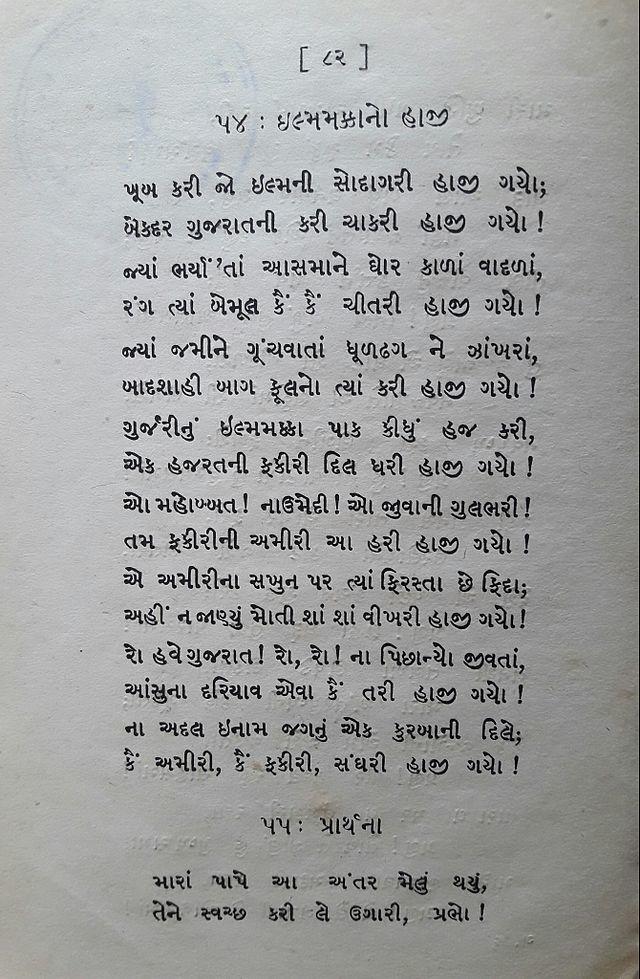 [ ૮૨ ]
૫૪ : ઇલ્મમક્કાનો હાજી
ખૂબ કરી જો ઇલ્મની સોદાગરી હાજી ગયો;
બેકદર ગુજરાતની કરી ચાકરી હાજી ગયો !
જ્યાં ભર્યાં'તાં આસમાને ઘોર કાળાં વાદળાં,
રંગ ત્યાં બેમૂલ કૈં કૈં ચીતરી હાજી ગયો !
જ્યાં જમીને ગૂંચવાતાં ધૂળઢગ ને ઝાંખરાં,
બાદશાહી બાગ ફૂલનો ત્યાં કરી હાજી ગયો !
ગુર્જરીનું ઇલ્મમક્કા પાક કીધું હજ કરી,
એક હજરતની ફકીરી દિલ ધરી હાજી ગયો !
ઓ મહોબ્બત ! નાઉમેદી ! ઓ જુવાની ગુલભરી !
તમ ફકીરીની અમીરી આ હરી હાજી ગયો !
એ અમીરીના સખુન પર ત્યાં ફિરસ્તા છે ફિદા;
અહીં ન જાણ્યું મોતી શાં શાં વીખરી હાજી ગયો!
રો હવે ગુજરાત! રો, રો! ના પિછાન્યો જીવતાં,
આંસુના દરિયાવ એવા કૈં તરી હાજી ગયો !
ના અદલ ઇનામ જગનું એક કુરબાની દિલે;
કૈં અમીરી, કૈં ફકીરી, સંઘરી હાજી ગયો !
૫૫ : પ્રાર્થના
મારાં પાપે આ અંતર મેલું થયું,
તેને સ્વચ્છ કરી લે ઉગારી, પ્રભો !